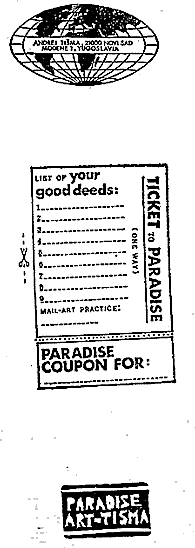 ANDREJ TIŠMA, 21000 NOVI SAD
MODENE 1, YUGOSLAVIA
LIST OF your
good deeds:
1
2
3
4
5
6
7
8
9
MAIL-ART PRACTICE:
TICKET TO PARADISE
(ONE WAY)
PARADISE
COUPON FOR:
PARADISE
ART-TIŠMA